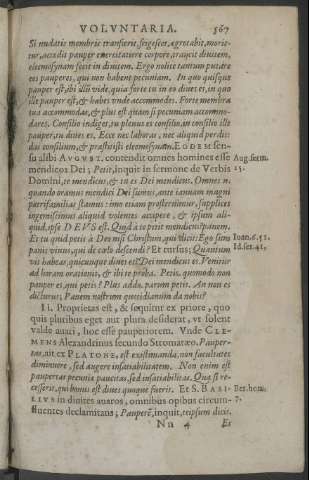 VOLVNTARIA. 567
Si nudatis membris transierit, frigescet, egrotabit, morie-
tur, accedit pauper exercitatiore corpore, traijcit diuitem,
eleemosynam fecit in diuitem. Ergo nolite tantum putare
eos pauperes, qui non habent pecuniam. In quo quisque
pauper est, ibi illi vide, quia forte tu in eo diues es, in quo
ille pauper est, & habes vnde accommodes. Forte membra
tua accommodas, & plus est quam si pecuniam accommo-
dares. Consilio indiget, tu plenus es consilio, in consilio ille
pauper, tu diues es. Ecce nec laboras, nec aliquid perdis:
das consilium, & præstitisti eleemosynam. EODEM sen-
su alibi AVGVST. contendit omnes homines esse
mendicos Dei; Petit, inquit in sermone de Verbis
Domini, te mendicus, & tu es Dei mendicus. Omnes n.
quando oramus mendici Dei sumus, ante ianuam magni
patrifamilias stamus: imo etiam prosternimur, supplices
ingemiscimus aliquid volentes accipere, & ipsum ali-
quid, ipse DEVS est. Quid à te petit mendicus? panem.
Et tu quid petis à Deo nisi Christum, qui dicit: Ego sum
panis viuus, qui de cœlo descendi? Et rursus; Quantum
vis habeas, quicunque diues est, Dei mendicus est. Venitur
ad horam orationis, & ibi te proba. Petis. quomodo non
pauper es, qui petis? Plus addo, panem petis. An non es
dicturus, Panem nostrum quotidianum da nobis?
Ii. Proprietas est, & sequitur ex priore, quo
quis pluribus eget aut plura desiderat, vt solent
valde auari, hoc esse pauperiorem. Vnde CLE-
MENS Alexandrinus secundo Stromatæo. Pauper-
tas, ait ex PLATONE, est existimanda, non facultates
diminuere, sed augere insatiabilitatem. Non enim est
paupertas pecuniæ paucitas, sed insatiabilitas. Qua si re-
cesserit, qui bonus est diues quoque fuerit. Et S. BASI-
LIVS in diuites auaros, omnibus opibus circum-
fluentes declamitans; Pauperẽ, inquit, teipsum dicis.
Nn 4 Et
Aug. serm.
15.
Ioan. 6.51.
Id. ser. 42.
Bas. hom.
7.